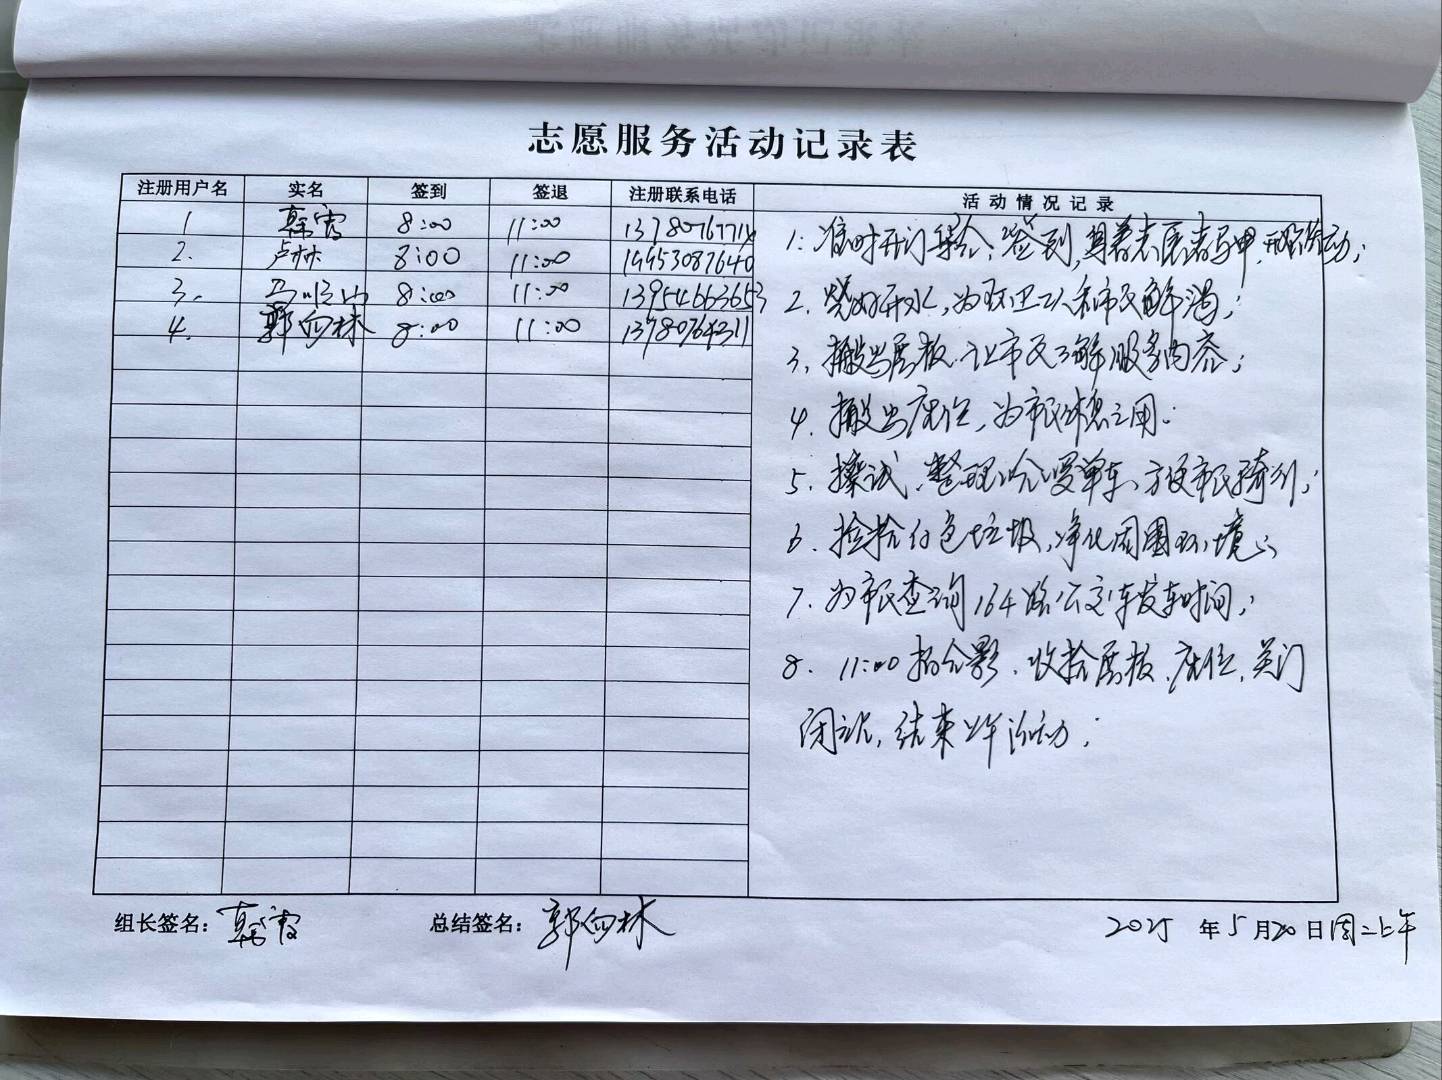 志愿服务活动记录表
注册用户名 实名 签到 签退 注册联系电话 活动情况记录
1 韩霞 8:00 11:00
2. 卢林 8:00 11:00
3. 马顺山 8:00 11:00 13954663653
4. 郭向林 8:00 11:00 13780764311
1. 准时开门 签到, 穿着志愿者马甲, 开始活动;
2. 烧好开水, 为环卫工人和市民解渴;
3. 搬出展板, 让市民了解服务内容;
4. 搬出座位, 为市民休息之用;
5. 擦试、整理哈啰单车、方便市民骑行;
6. 捡拾白色垃圾, 净化周围环境;
7. 为市民查询164路公交车发车时间;
8. 11:00拍合影. 收拾展板、座位, 关门
闭站, 结束上午活动;
组长签名: 韩霞 总结签名: 郭向林 2025 年 5 月 20 日 周二上午